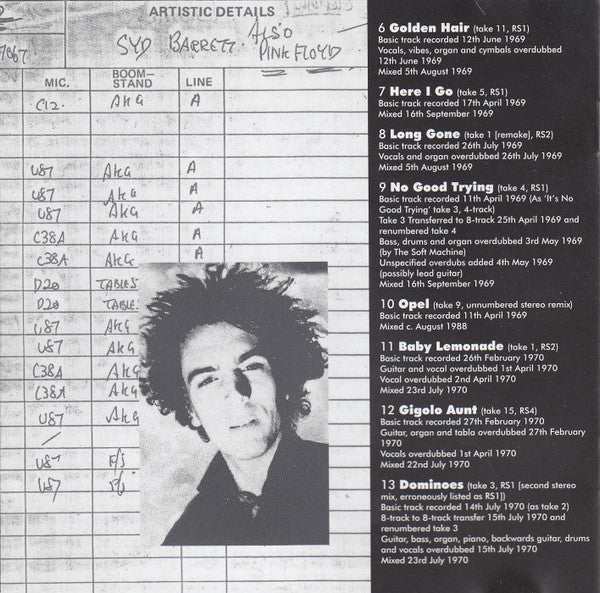 ARTISTIC DETAILS
SYD BARRETT ALSO
PINK FLOYD
MIC.
BOOM–
STAND
LINE
C12. AKG A
U87 AKG A
U87 AKG A
U87 AKG A
C38A AKG A
C38A AKG A
D20 TABLES
D20 TABLE.
U87 AKG
U87 AKG
C38A AKG
C38A AKG
U87 AKG
U87 F/S
U87
6 Golden Hair (take 11, RS1)
Basic track recorded 12th June 1969
Vocals, vibes, organ and cymbals overdubbed
12th June 1969
Mixed 5th August 1969
7 Here I Go (take 5, RS1)
Basic track recorded 17th April 1969
Mixed 16th September 1969
8 Long Gone (take 1 [remake], RS2)
Basic track recorded 26th July 1969
Vocals and organ overdubbed 26th July 1969
Mixed 5th August 1969
9 No Good Trying (take 4, RS1)
Basic track recorded 11th April 1969 (As 'It's No
Good Trying' take 3, 4-track)
Take 3 Transferred to 8-track 25th April 1969 and
renumbered take 4
Bass, drums and organ overdubbed 3rd May 1969
(by The Soft Machine)
Unspecified overdubs added 4th May 1969
(possibly lead guitar)
Mixed 16th September 1969
10 Opel (take 9, unnumbered stereo remix)
Basic track recorded 11th April 1969
Mixed c. August 1988
11 Baby Lemonade (take 1, RS2)
Basic track recorded 26th February 1970
Guitar and vocal overdubbed 1st April 1970
Vocal overdubbed 2nd April 1970
Mixed 23rd July 1970
12 Gigolo Aunt (take 15, RS4)
Basic track recorded 27th February 1970
Guitar, organ and tabla overdubbed 27th February
1970
Vocals overdubbed 1st April 1970
Mixed 22nd July 1970
13 Dominoes (take 3, RS1 [second stereo
mix, erroneously listed as RS1])
Basic track recorded 14th July 1970 (as take 2)
8-track to 8-track transfer 15th July 1970 and
renumbered take 3
Guitar, bass, organ, piano, backwards guitar, drums
and vocals overdubbed 15th July 1970
Mixed 23rd July 1970